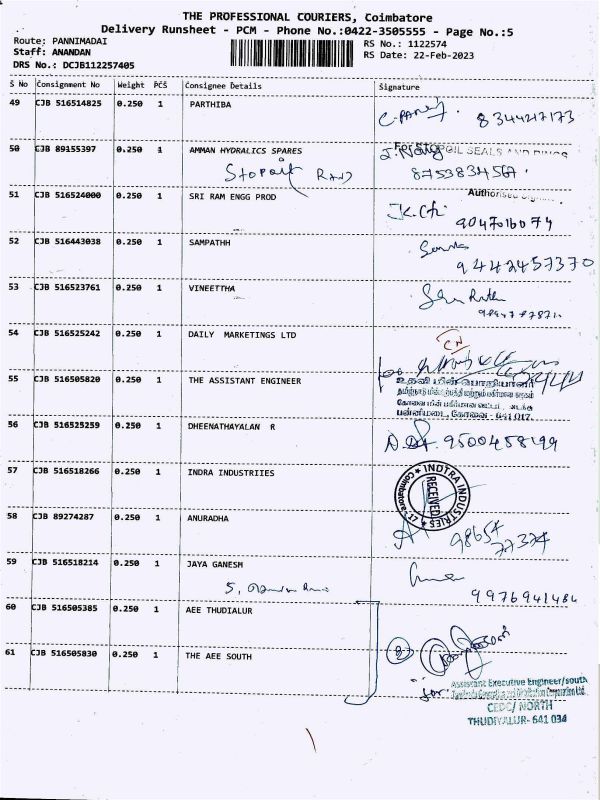 THE PROFESSIONAL COURIERS, Coimbatore
Delivery Runsheet - PCM - Phone No.:0422-3505555 - Page No.:5
Route: PANNIMADAI
RS No.: 1122574
Staff: ANANDAN
RS Date: 22-Feb-2023
DRS No.: DCJB112257405
S No Consignment No Weight PCS Consignee Details Signature
49 CJB 516514825 0.250 1 PARTHIBA
8344217173
50 CJB 89155397 0.250 1 AMMAN HYDRALICS SPARES
For STOPOIL SEALS AND RINGS
8753834567
51 CJB 516524000 0.250 1 SRI RAM ENGG PROD
Authorised
9047016074
52 CJB 516443038 0.250 1 SAMPATHH
9442457370
53 CJB 516523761 0.250 1 VINEETTHA
54 CJB 516525242 0.250 1 DAILY MARKETINGS LTD
CN
55 CJB 516505820 0.250 1 THE ASSISTANT ENGINEER
உதவி மின் பொறியாளர்
பன்னிமடை, கோவை - 641 017.
56 CJB 516525259 0.250 1 DHEENATHAYALAN R
9500458199
57 CJB 516518266 0.250 1 INDRA INDUSTRIIES
INDTRA INDUSTRIES
RECEIVED
Coimbatore-17
58 CJB 89274287 0.250 1 ANURADHA
98654
77374
59 CJB 516518214 0.250 1 JAYA GANESM
9976941484
60 CJB 516505385 0.250 1 AEE THUDIALUR
61 CJB 516505830 0.250 1 THE AEE SOUTH
for Assistant Executive Engineer/south
Tamilnadu Generation and Distribution Corporation Ltd.
CEDC/ NORTH
THUDIYALUR- 641 034